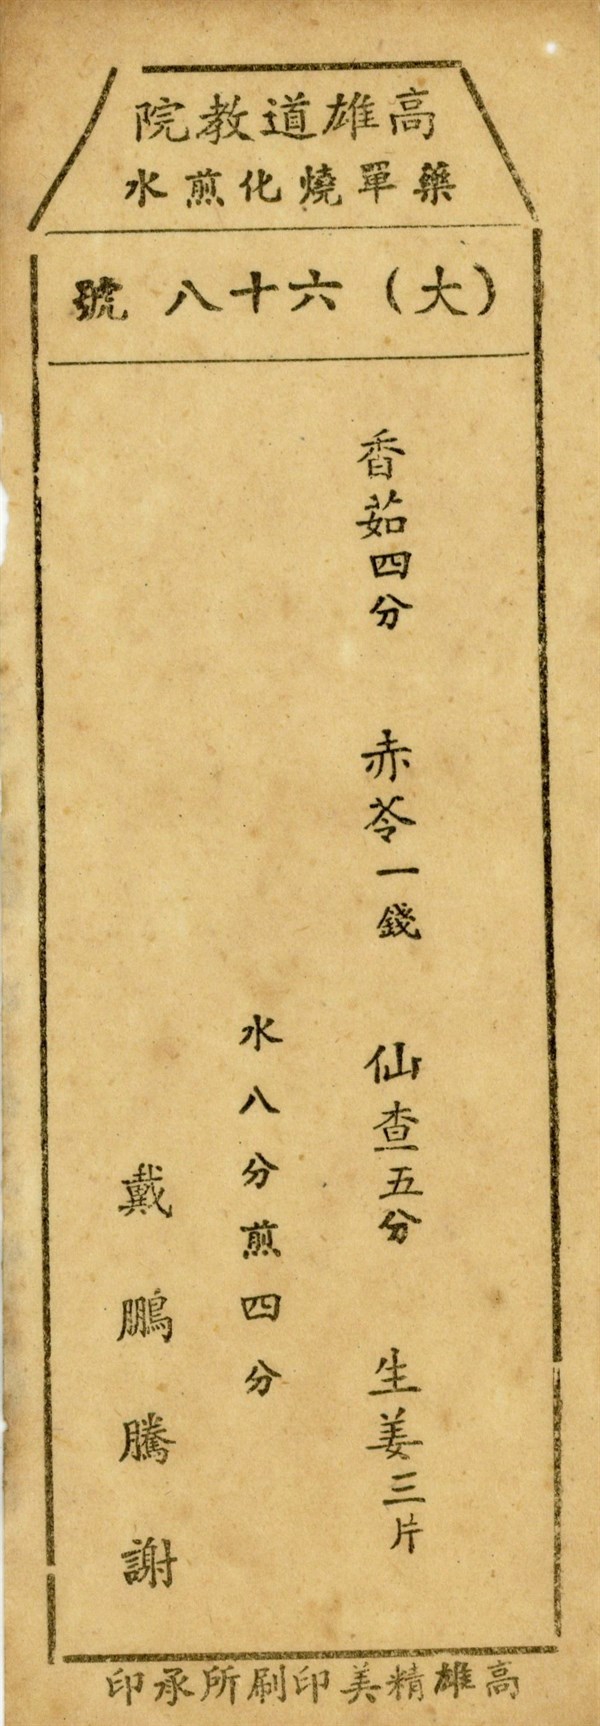 高雄道教院
藥單燒化煎水
（大）六十八號
香茹四分　赤苓一錢　仙查五分　生姜三片
水八分煎四分
戴鵬騰謝
高雄精美印刷所承印